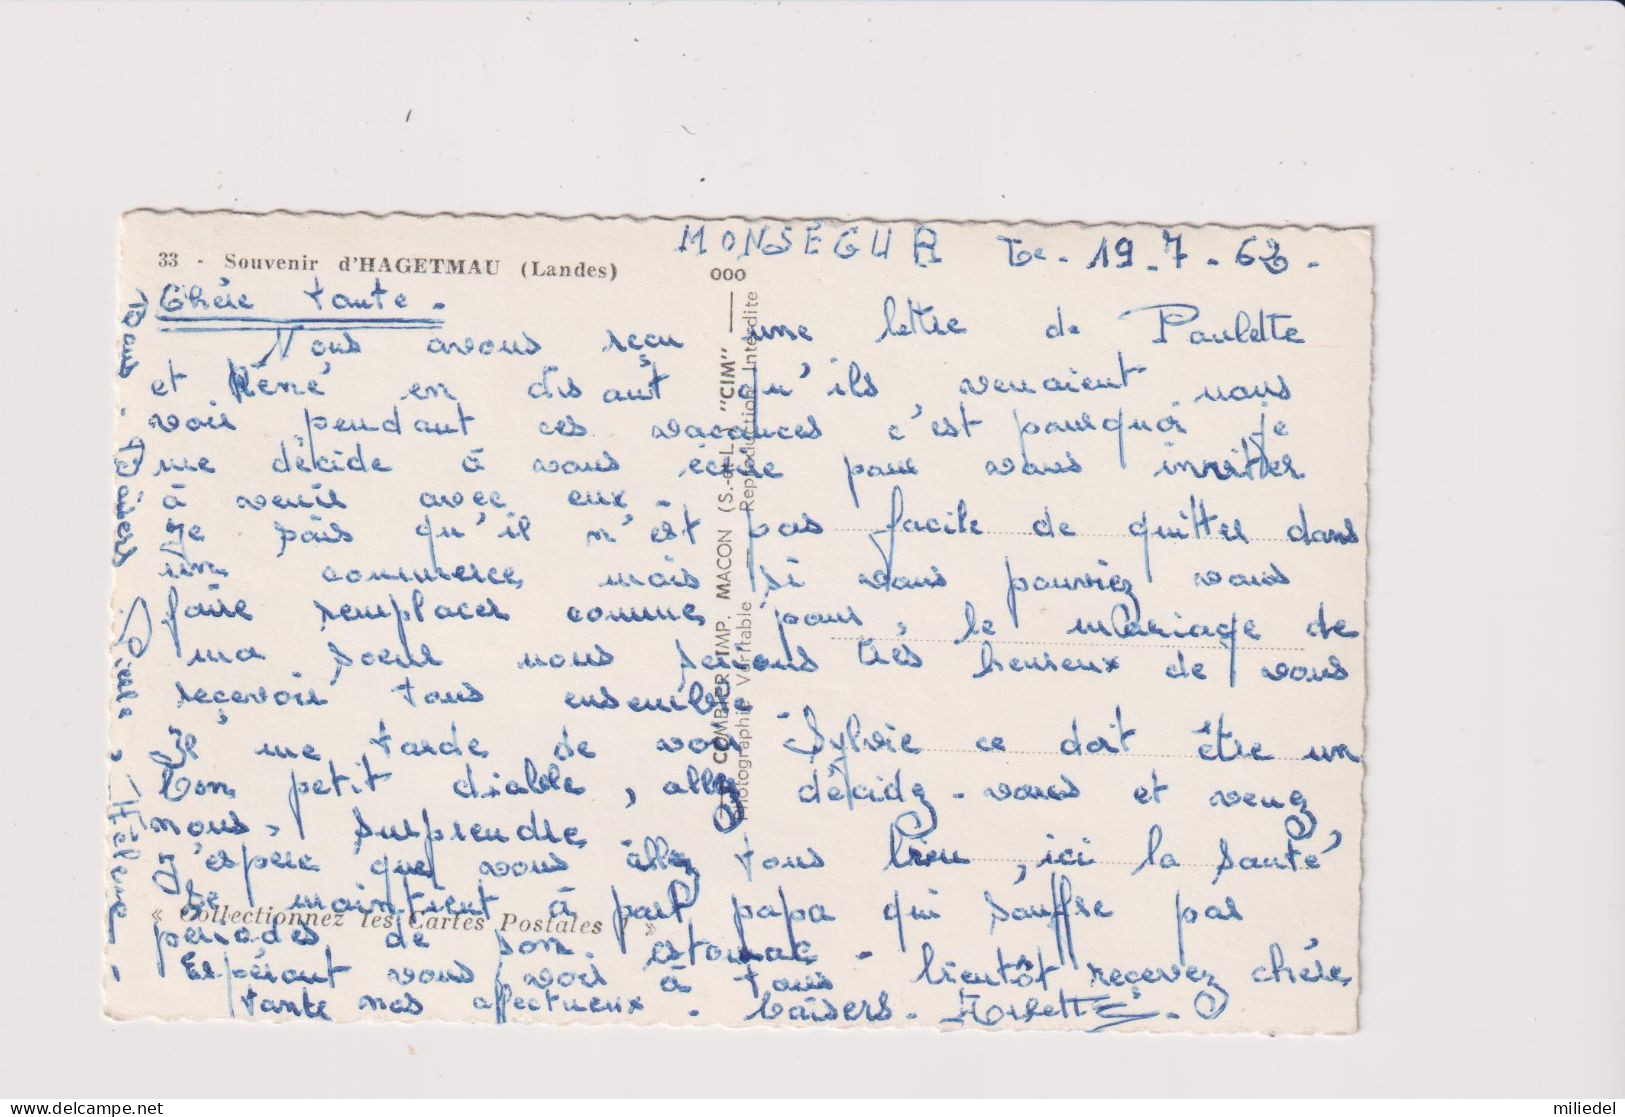 MONSÉGUR le. 19.7.62.
33 - Souvenir d'HAGETMAU (Landes)
Chére tante.
Nous avons reçu une lettre de Paulette
et Réné en disant qu'ils venaient nous
voir pendant ces vacances c'est pourquoi je
me décide à vous écrire pour vous inviter
à venir avec eux.
Je sais qu'il n'est pas facile de quitter dans
un commerce, mais si vous pouviez vous
faire remplacer comme pour, le mariage de
ma soeur nous serions très heureux de vous
reçevoir tous ensemble
Il me tarde de voir Sylvie ce doit être un
bon petit diable, allez décidez-vous et venez
nous, surprendre
J'espere que vous allez tous bien, ici la santé
se maintient à part papa qui souffre par
périodes de son estomac.
Espérant vous voir à tous bientôt reçevez chére
tante nos affectueux. baisers. Arlette.
Bons. Baisers.
Hélène.
« Collectionnez les Cartes Postales ! »
ooo
COMBIER IMP. MACON (S.-et-L.) "CIM"
Photographie Véritable — Reproduction Interdite
miliedel